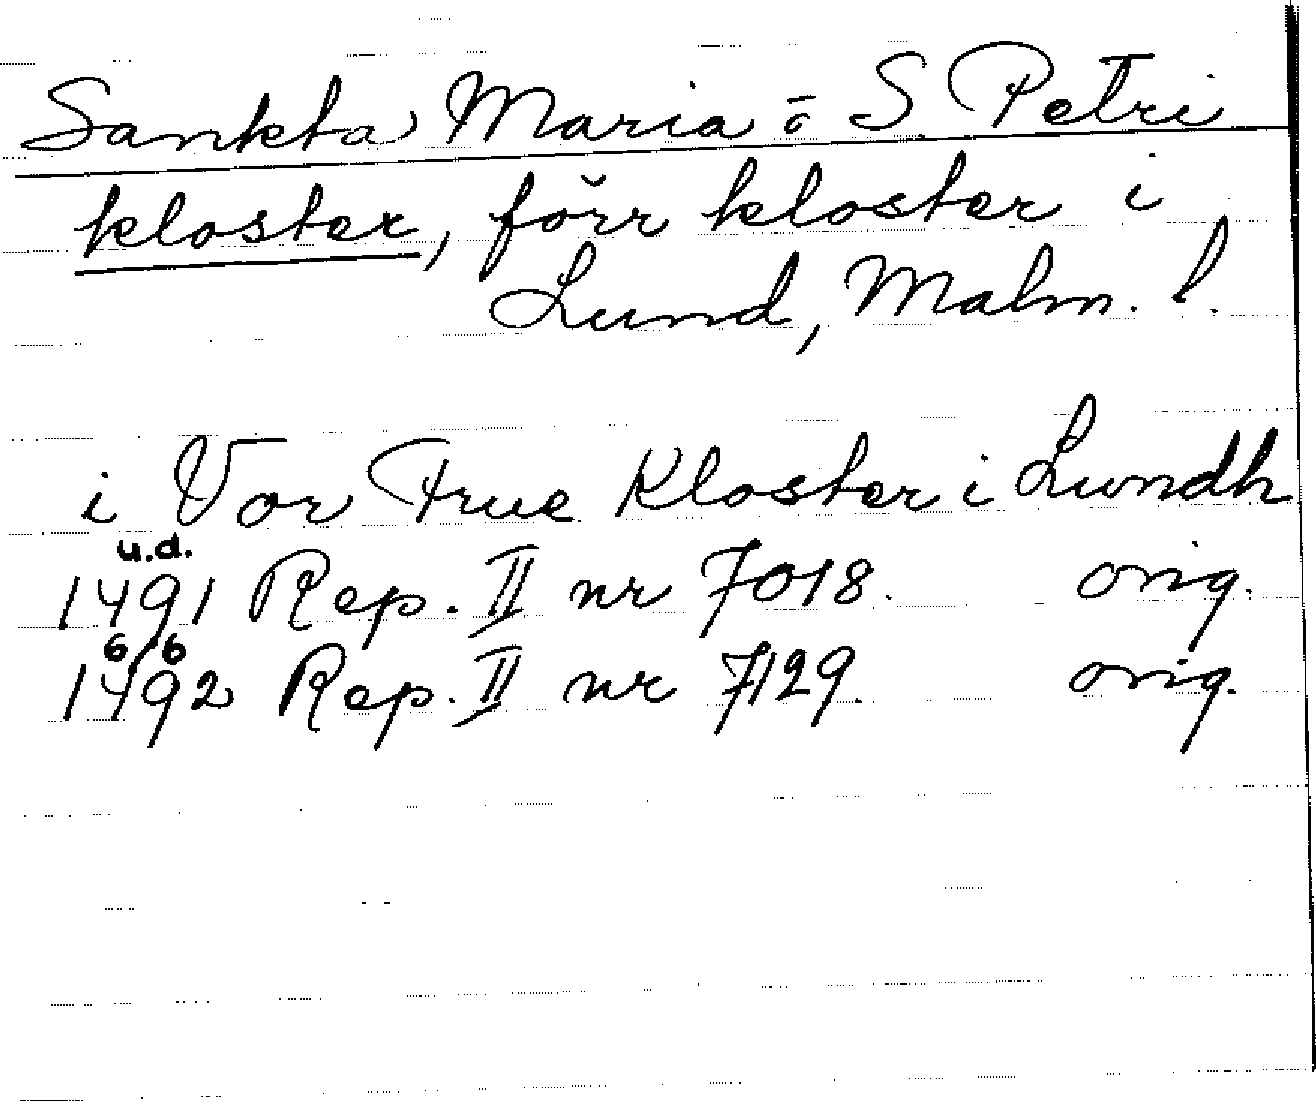 Sankta Maria o S. Petri
kloster, förr kloster i
Lund, Malm. l.
i Vor Frue Kloster i Lundh
u.d.
1491 Rep. II nr 7018. orig.
6/6
1492 Rep. II nr 7129. orig.